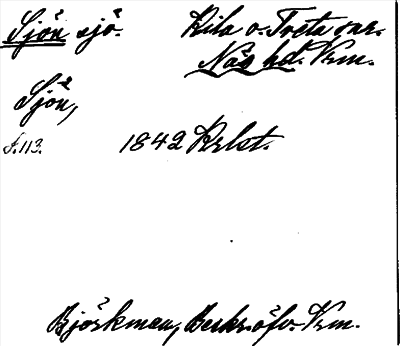 Sjön sjö. Kila o. Tveta snr.
Näs hd. Vrm.
Sjön,
s. 113. 1842 Krlst.
Björkman, Beskr. öfv. Vrm.